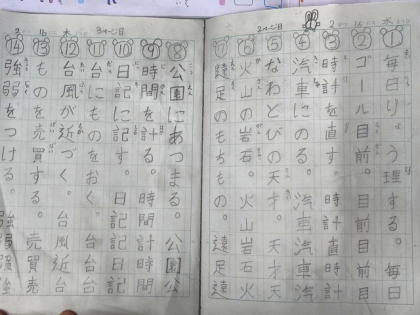 ①毎日りょう理する。毎日
②ゴール目前。目前
③時計を直す。時計直
④汽車にのる。汽車
⑤なわとびの天才。天才
⑥火山の岩石。火山岩石
⑦遠足のもちもの。遠足
⑧公園にあつまる。公園公
⑨時間を計る。時間計時間
⑩日記に記す。日記記
⑪台にものをおく。台台台
⑫台風が近づく。台風近台
⑬もの を売買する。売買売
⑭強弱をつける。強弱強弱強